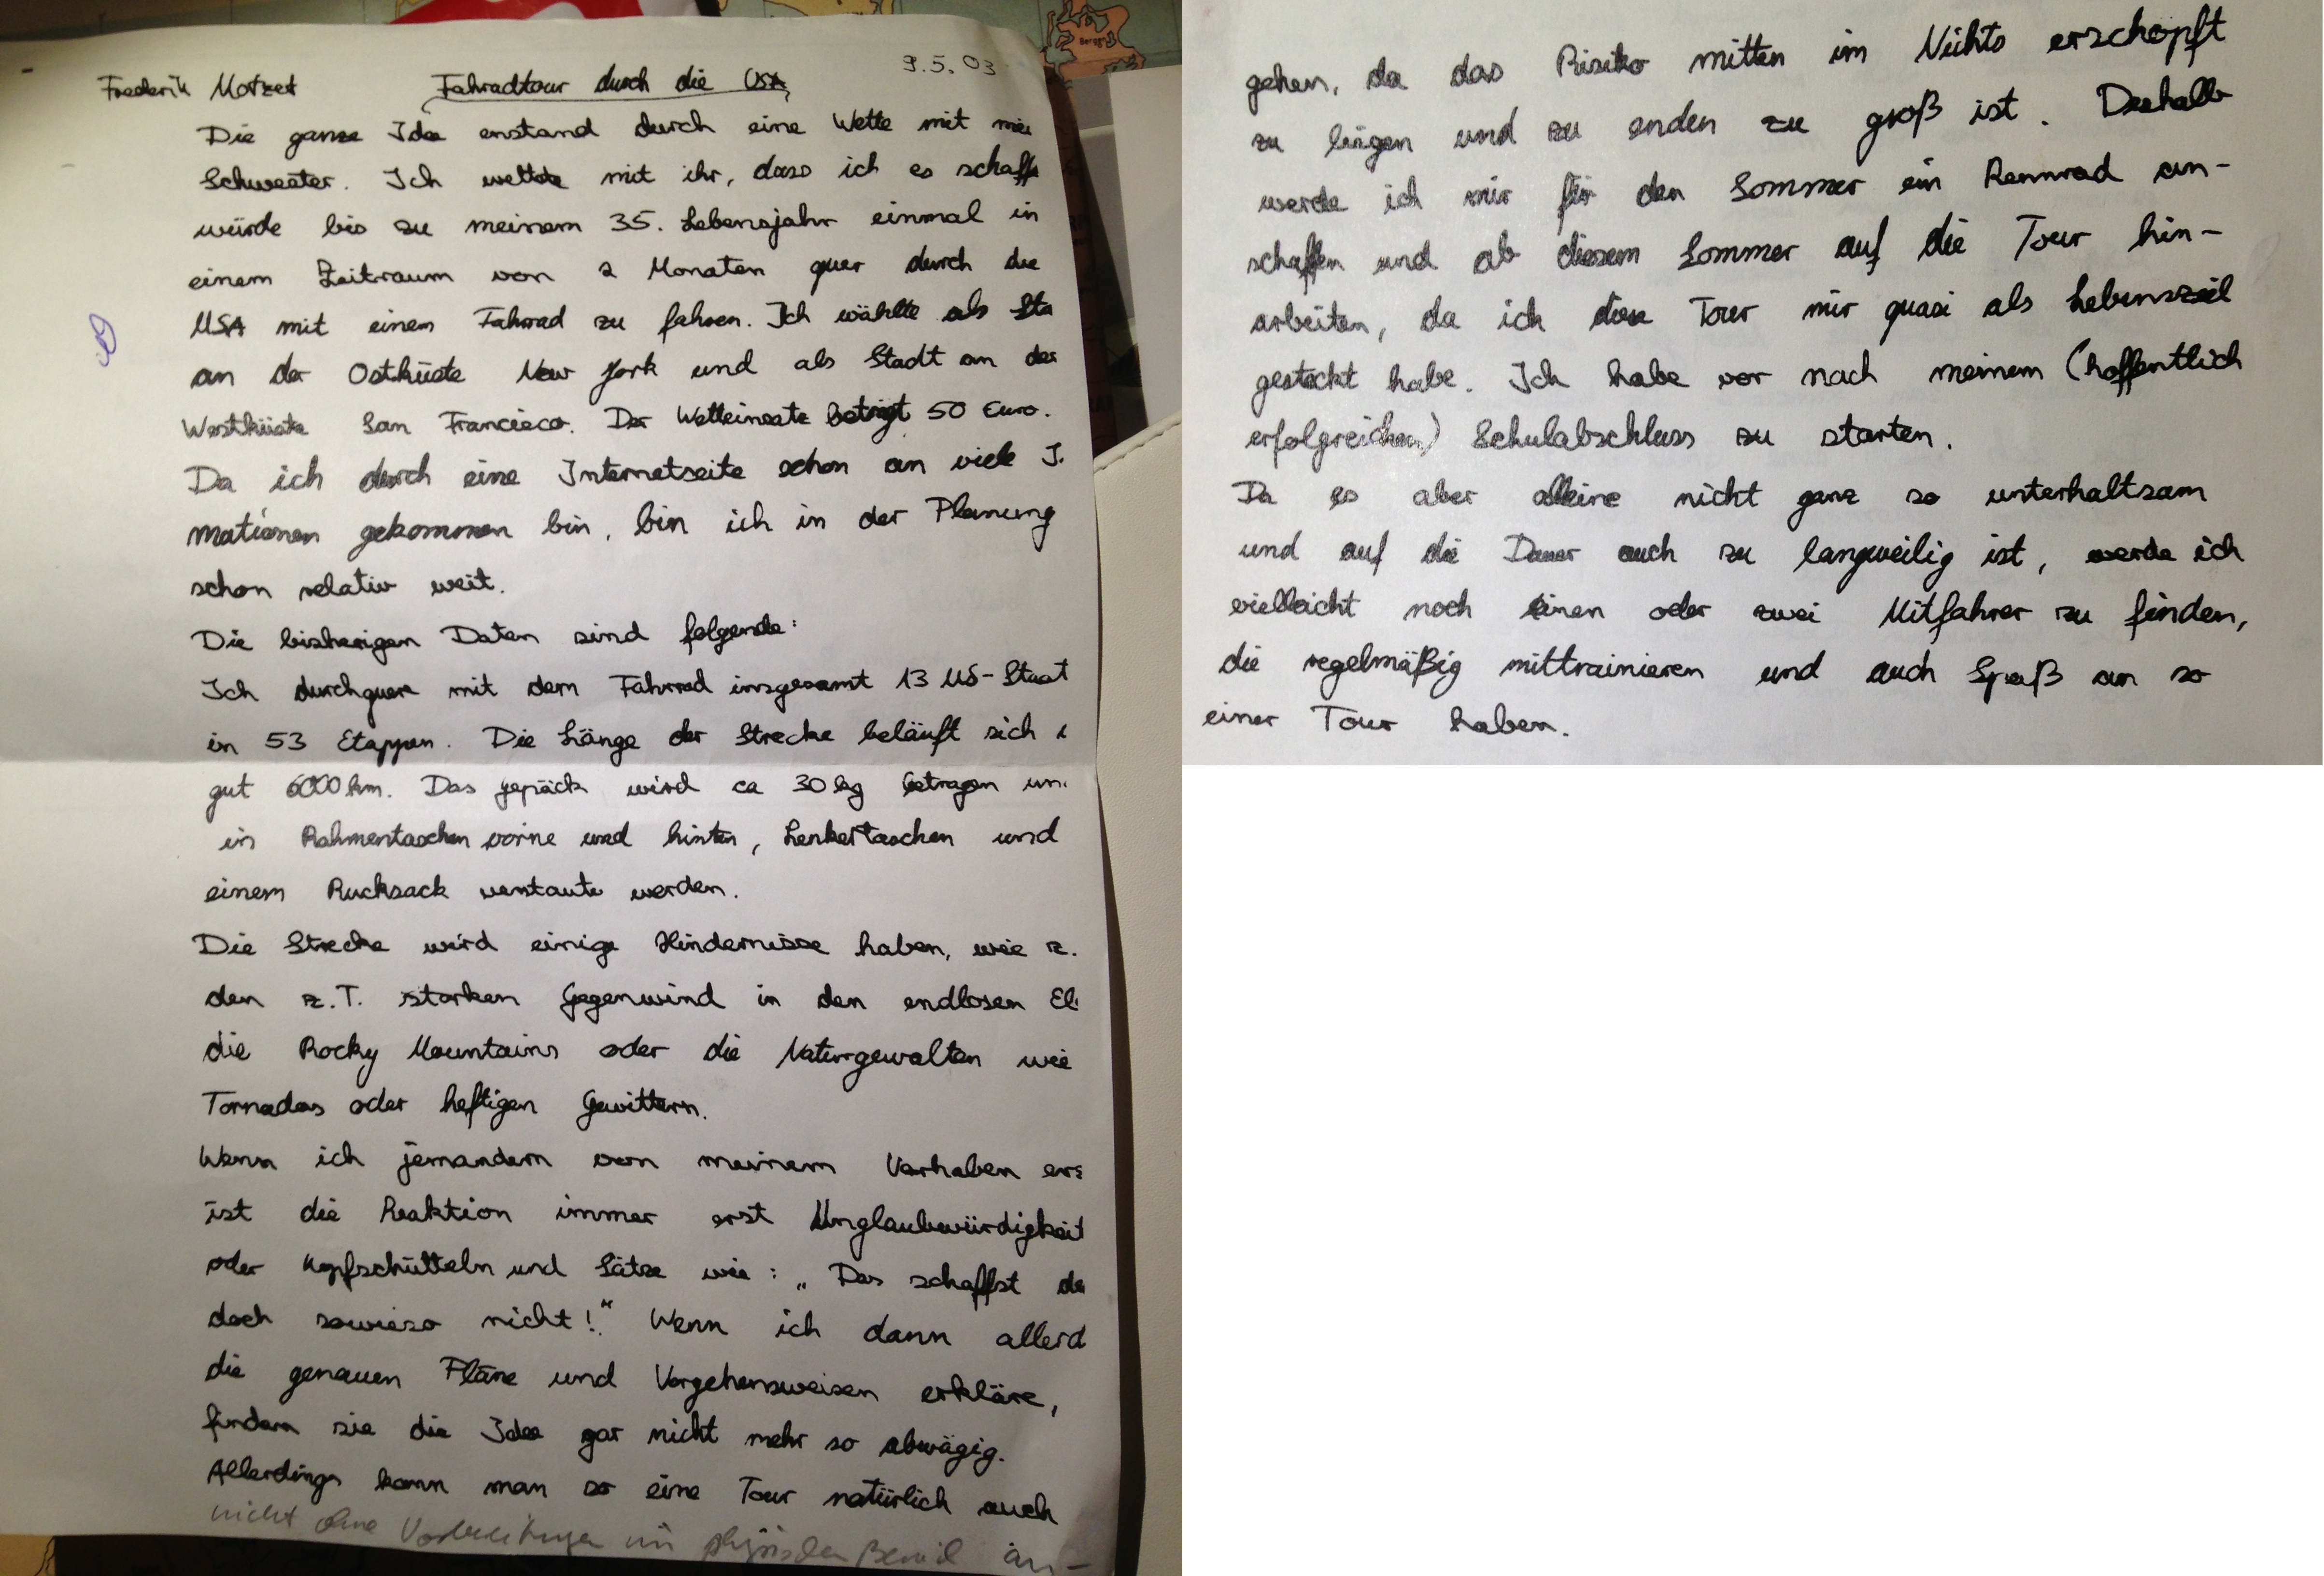 9.5.03
Frederik Motzet Fahradtour durch die USA
Die ganze Idee enstand durch eine Wette mit mei
Schwester. Ich wettete mit ihr, dass ich es schaffe
würde bis zu meinem 35. Lebensjahr einmal in
einem Zeitraum von 2 Monaten quer durch die
USA mit einem Fahrrad zu fahren. Ich wählte als Sta
an der Ostküste New York und als Stadt an der
Westküste San Francisco. Der Wetteinsatz beträgt 50 Euro.
Da ich durch eine Internetseite schon an viele I
mationen gekommen bin, bin ich in der Planung
schon relativ weit.
Die bisherigen Daten sind folgende:
Ich durchquere mit dem Fahrrad insgesamt 13 US-Staat
in 53 Etappen. Die Länge der Strecke beläuft sich
gut 6000 km. Das gepäck wird ca 30 kg betragen un
in Rahmentaschen vorne und hinten, Lenkertaschen und
einem Rucksack verstaut werden.
Die Strecke wird einige Hindernisse haben, wie z.
den z.T. starken Gegenwind in den endlosen Eb
die Rocky Mountains oder die Naturgewalten wie
Tornados oder heftigen Gewittern.
Wenn ich jemandem von meinem Vorhaben erz
ist die Reaktion immer erst Unglaubwürdigkeit
oder Kopfschütteln und Sätze wie: „Das schaffst du
doch sowieso nicht!" Wenn ich dann allerd
die genauen Pläne und Vorgehensweisen erkläre,
finden sie die Idee gar nicht mehr so abwägig.
Allerdings kann man so eine Tour natürlich auch
nicht ohne Vorbereitungen im physischen an-
gehen, da das Risiko mitten im Nichts erschöpft
zu liegen und zu enden zu groß ist. Deshalb
werde ich mir für den Sommer ein Rennrad an-
schaffen und ab diesem Sommer auf die Tour hin-
arbeiten, da ich diese Tour mir quasi als Lebensziel
gesteckt habe. Ich habe vor nach meinem (hoffentlich
erfolgreichen) Schulabschluss zu starten.
Da es aber alleine nicht ganz so unterhaltsam
und auf die Dauer auch zu langweilig ist, werde ich
vielleicht noch einen oder zwei Mitfahrer zu finden,
die regelmäßig mittrainieren und auch Spaß an so
einer Tour haben.